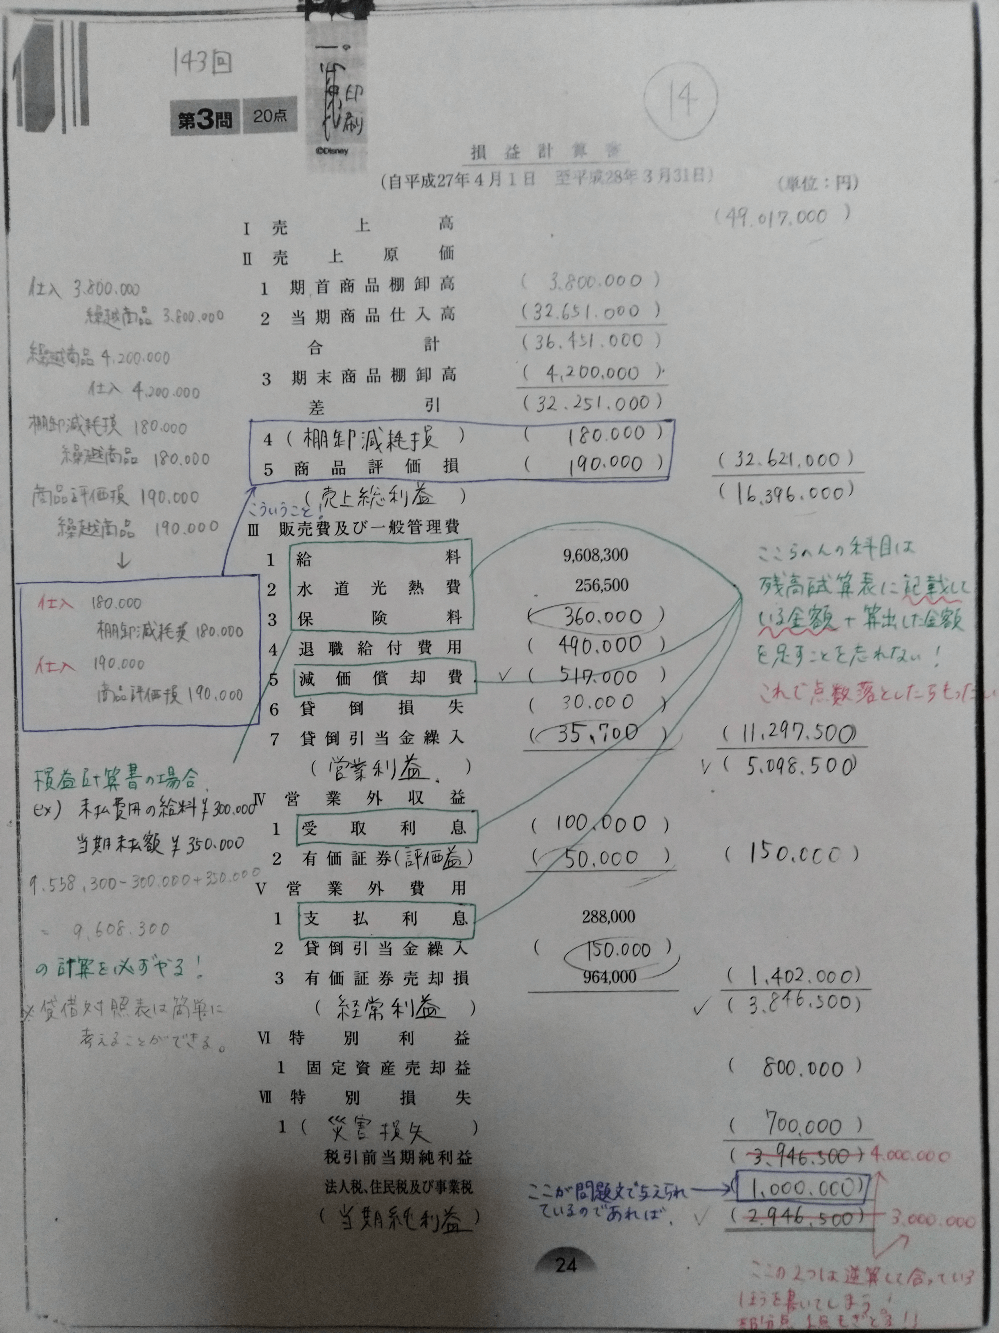 143回
第3問 20点
印刷
©Disney
14
損益計算書
(自平成27年4月1日 至平成28年3月31日) (単位：円)
Ⅰ 売上高 (49.017.000)
Ⅱ 売上原価
1 期首商品棚卸高 (3.800.000)
2 当期商品仕入高 (32.651.000)
合計 (36.451.000)
3 期末商品棚卸高 (4,200,000)
差引 (32.251.000)
4 (棚卸減耗損) (180.000)
5 商品評価損 (190.000) (32.621.000)
(売上総利益) (16,396.000)
Ⅲ 販売費及び一般管理費
1 給料 9,608,300
2 水道光熱費 256,500
3 保険料 (360.000)
4 退職給付費用 (490,000)
5 減価償却費 (517.000)
6 貸倒損失 (30.000)
7 貸倒引当金繰入 (35,700) (11,297,500)
(営業利益) (5,098,500)
Ⅳ 営業外収益
1 受取利息 (100,000)
2 有価証券(評価益) (50,000) (150,000)
Ⅴ 営業外費用
1 支払利息 288,000
2 貸倒引当金繰入 (150.000)
3 有価証券売却損 964,000 (1,402.000)
(経常利益) (3,846,500)
Ⅵ 特別利益
1 固定資産売却益 (800.000)
Ⅶ 特別損失
1 (災害損失) (700,000)
税引前当期純利益 (3,946,500) 4.000.000
法人税、住民税及び事業税 (1,000,000)
(当期純利益) (2,946,500) 3,000,000
24
仕入 3.800.000
繰越商品 3.800.000
繰越商品 4,200.000
仕入 4,200.000
棚卸減耗損 180.000
繰越商品 180,000
商品評価損 190,000
繰越商品 190,000
↓
仕入 180.000
棚卸減耗費 180.000
仕入 190.000
商品評価損 190,000
こういうこと！
損益計算書の場合
ex) 未払費用の給料￥300,000
当期未払額￥350,000
9,558,300-300.000+350.000
= 9,608.300
の計算を必ずやる！
※貸借対照表は簡単に
考えることができる。
ここらへんの科目は
残高試算表に記載して
いる金額＋算出した金額
を足すことを忘れない！
これで点数落としたらもったい
ここが問題文で与えられ
ているのであれば、
ここの2つは逆算して合っている
ほうを書いてしまう！